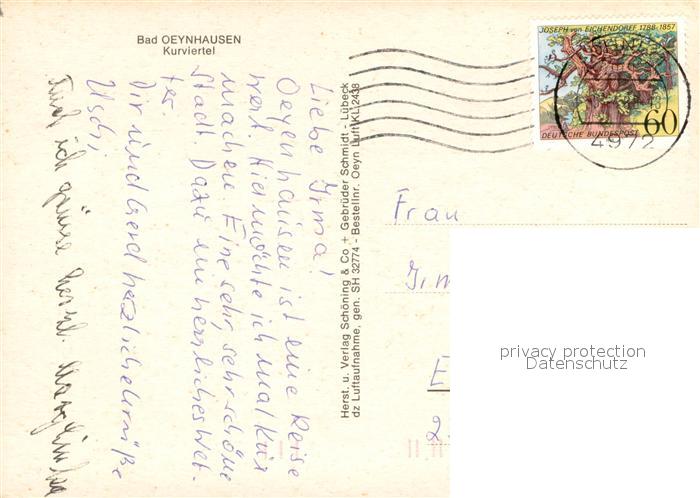 Bad OEYNHAUSEN
Kurviertel
Liebe Irma!
Oeyenhausen ist eine Reise
wert. Hier möchte ich mal Kur
machen. Eine sehr, sehr schöne
Stadt. Dazu ein herrliches Wet-
ter.
Dir und Gerd herzliche Grüße
Uschi
Auch ich grüsse herzl.
Herst. u. Verlag Schöning & Co + Gebrüder Schmidt - Lübeck
dz Luftaufnahme, gen. SH 32774 - Bestellnr. Oeyn Luft/KL 2438
JOSEPH von EICHENDORFF 1788-1857
DEUTSCHE BUNDESPOST 60
4972
Frau
privacy protection
Datenschutz